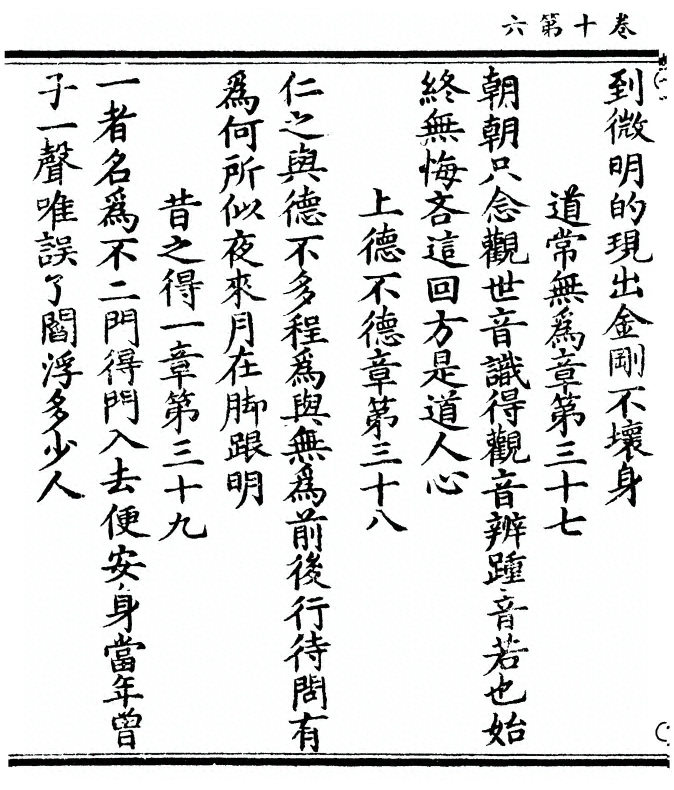 卷十第六
到微明的現出金剛不壞身
道常無爲章第三十七
朝朝只念觀世音識得觀音辨踵音若也始
終無悔吝這回方是道人心
上德不德章第三十八
仁之與德不多程爲與無爲前後行待問有
爲何所似夜來月在脚跟明
昔之得一章第三十九
一者名爲不二門得門入去便安身當年曾
子一聲唯誤了閻浮多少人